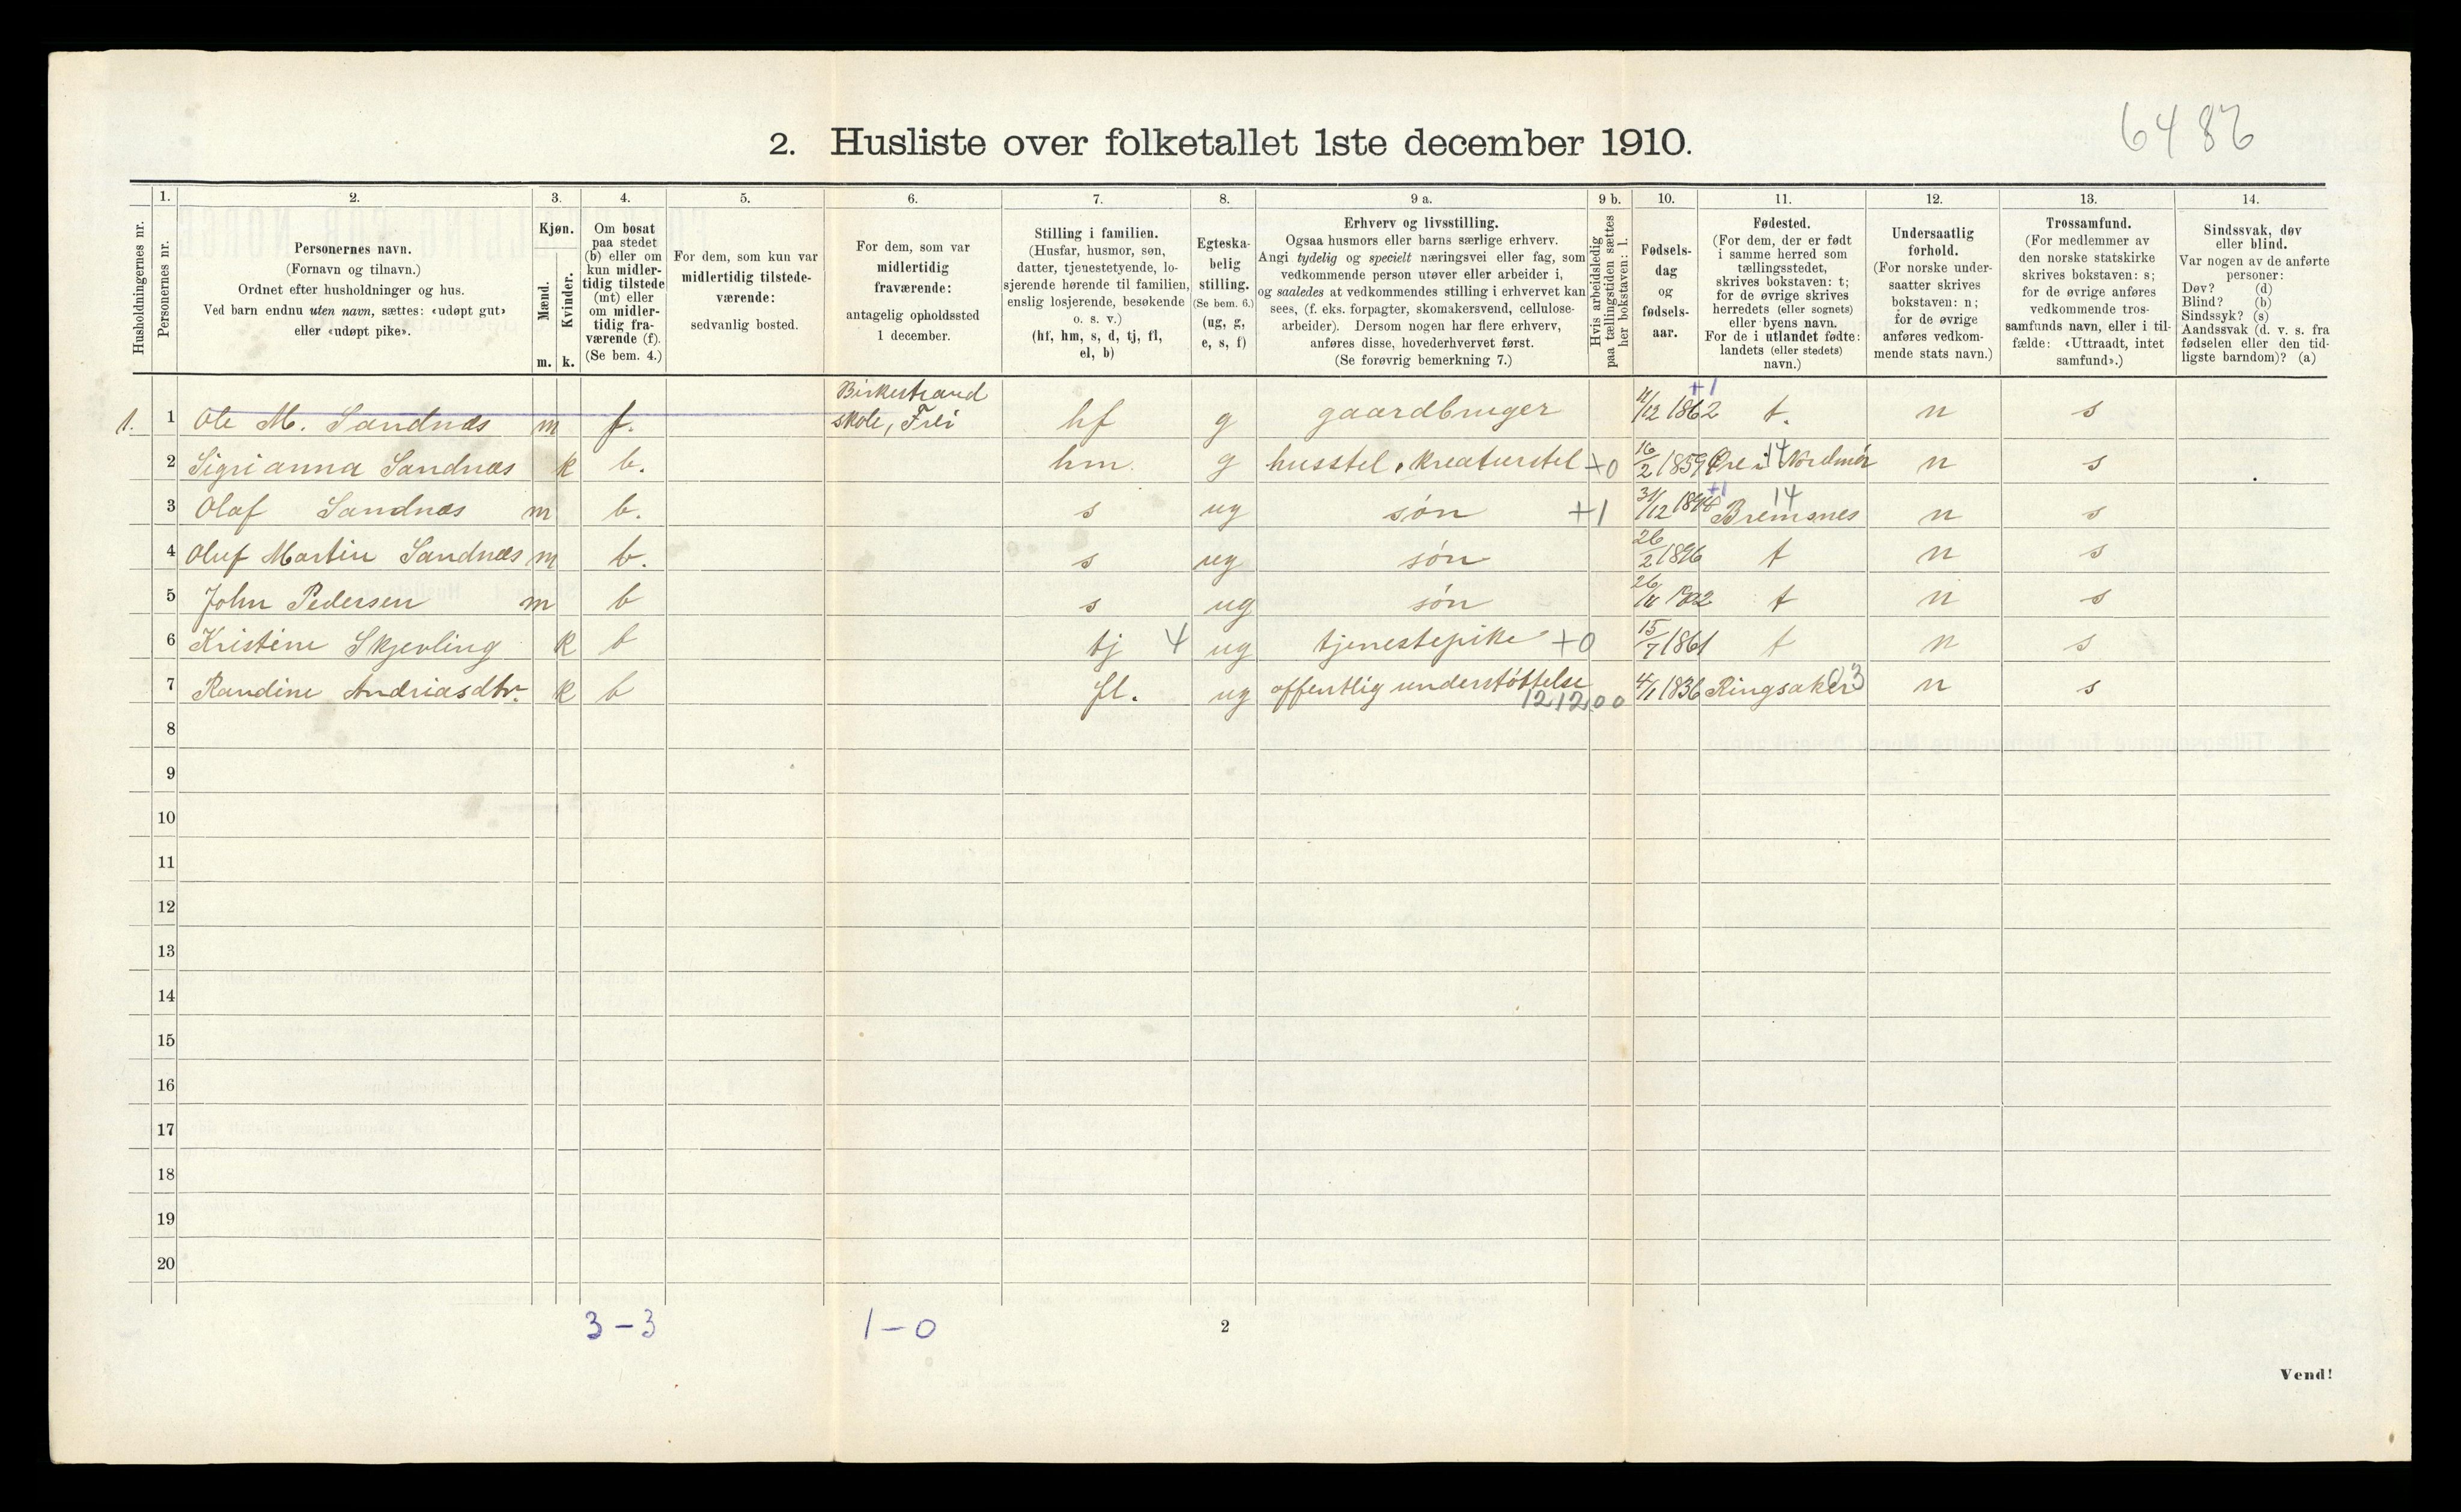 6486
2. Husliste over folketallet 1ste december 1910.
Husholdningernes nr.
1. Personernes nr.
2. Personernes navn. (Fornavn og tilnavn.) Ordnet efter husholdninger og hus. Ved barn endnu uten navn, sættes: «udøpt gut» eller «udøpt pike».
3. Kjøn. Mænd. m. Kvinder. k.
4. Om bosat paa stedet (b) eller om kun midlertidig tilstede (mt) eller om midlertidig fraværende (f). (Se bem. 4.)
5. For dem, som kun var midlertidig tilstedeværende: sedvanlig bosted.
6. For dem, som var midlertidig fraværende: antagelig opholdssted 1 december.
7. Stilling i familien. (Husfar, husmor, søn, datter, tjenestetyende, losjerende hørende til familien, enslig losjerende, besøkende o. s. v.) (hf, hm, s, d, tj, fl, el, b)
8. Egteskabelig stilling. (Se bem. 6.) (ug, g, e, s, f)
9 a. Erhverv og livsstilling. Ogsaa husmors eller barns særlige erhverv. Angi tydelig og specielt næringsvei eller fag, som vedkommende person utøver eller arbeider i, og saaledes at vedkommendes stilling i erhvervet kan sees, (f. eks. forpagter, skomakersvend, cellulosearbeider). Dersom nogen har flere erhverv, anføres disse, hovederhvervet først. (Se forøvrig bemerkning 7.)
9 b. Hvis arbeidsledig paa tællingstiden sættes her bokstaven: l.
10. Fødselsdag og fødselsaar.
11. Fødested. (For dem, der er født i samme herred som tællingsstedet, skrives bokstaven: t; for de øvrige skrives herredets (eller sognets) eller byens navn. For de i utlandet fødte: landets (eller stedets) navn.)
12. Undersaatlig forhold. (For norske undersaatter skrives bokstaven: n; for de øvrige anføres vedkommende stats navn.)
13. Trossamfund. (For medlemmer av den norske statskirke skrives bokstaven: s; for de øvrige anføres vedkommende trossamfunds navn, eller i tilfælde: «Uttraadt, intet samfund».)
14. Sindssvak, døv eller blind. Var nogen av de anførte personer: Døv? (d) Blind? (b) Sindssyk? (s) Aandssvak (d. v. s. fra fødselen eller den tidligste barndom)? (a)
1. 1 Ole M. Sandnæs m f. Birkestrand skole, Frei hf g gaardbruger 11/12 1862 +1 t. n s
2 Sigrianna Sandnæs k b. hm. g husstel, kreaturstel +0 16/2 1859 Øre i Nordmør 14 n s
3 Olaf Sandnæs m b. s ug søn +1 31/12 +1 Bremsnes 14 n s
4 Oluf Martin Sandnæs m b. s ug søn 26/2 1896 t n s
5 John Pedersen m b s ug søn 1902 t n s
6 Kristine Skjevling k b tj 4 ug tjenestepike +0 15/7 1861 t n s
7 Randine Andriasdtr. k b fl. ug offentlig understøttelse 121200 4/1 1836 Ringsaker 03 n s
8
9
10
11
12
13
14
15
16
17
18
19
20
3-3 1-0
2
Vend!